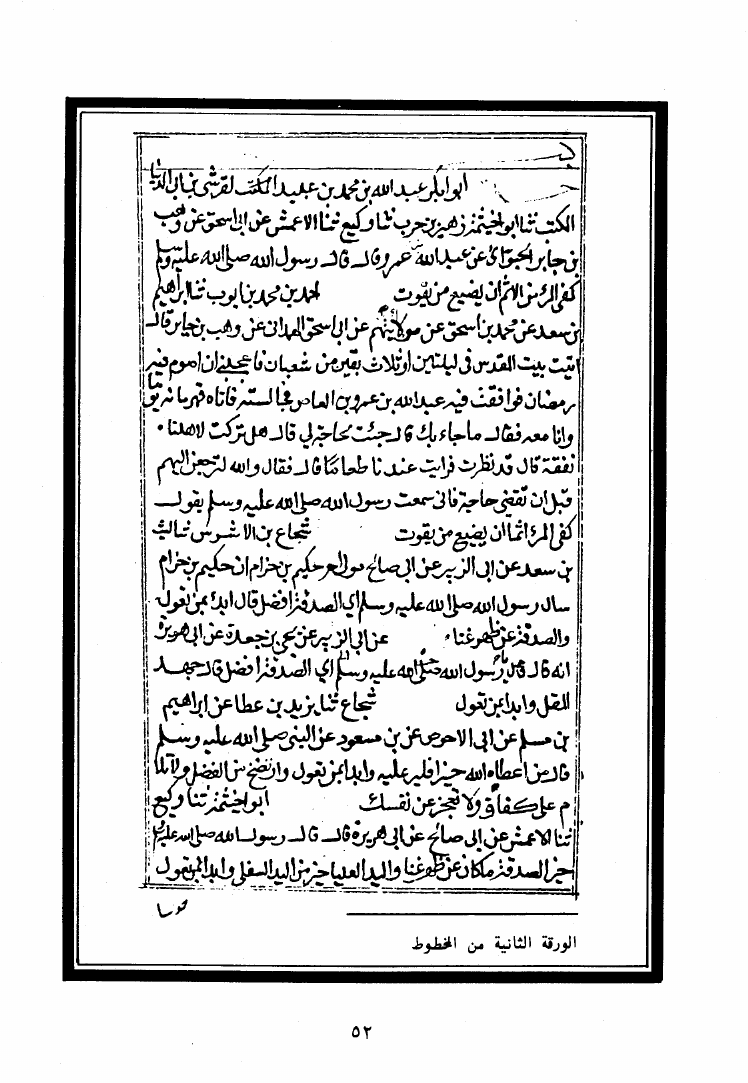 ابوا بكر عبد الله بن محمد بن عبيد المكتب القرشي بن ابى الدنيا
الكتب ثنا ابوا خيثمة زهير بن حرب ثنا وكيع ثنا الاعمش عن ابى اسحق عن وهب
بن جابر عن عبد الله عمرو قال قال رسول الله صلى الله عليه وسلم
كفى المرء من الاثم ان يضيع من يقوت احمد بن محمد بن ايوب ثنا ابراهيم
بن سعد عن محمد بن اسحق عن عن ابى اسحق الهمدانى عن وهب بن جابر قال
اتيت بيت المقدس فى ليلتين او ثلاث بقين من شعبان فاعجلنى ان اصوم فيه
رمضان فوافقت فيه عبد الله بن عمرو بن العاص فاتاه قهرمانه يوما
وانا معه فقال ما جاء بك قال جئت لحاجة لي قال هل تركت لاهلنا
نفقة قال قد نظرت فرايت عندنا طعاما قال فقال والله لترجعن اليهم
قبل ان تقضي حاجة فانى سمعت رسول الله صلى الله عليه وسلم يقول
كفى المرء اثما ان يضيع من يقوت شجاع بن الاشرس ثنا ليث
بن سعد عن ابى الزبير عن ابى صالح مولى حكيم بن حزام ان حكيم بن حزام
سال رسول الله صلى الله عليه وسلم اي الصدقة افضل قال ابدا بمن تعول
والصدقة عن ظهر غناء عن ابى الزبير عن يحيى بن جعدة عن ابى هريرة
انه قال يا رسول الله صلى الله عليه وسلم اي الصدقة افضل قال جهد
المقل وابدا بمن تعول شجاع ثنا يزيد بن عطا عن ابراهيم
بن مسلم عن ابى الاحوص عن بن مسعود عن النبى صلى الله عليه وسلم
قال من اعطاه الله خيرا فلير عليه وابدا بمن تعول وارتضخ من الفضل ولا تلا
م على كفاف ولا تعجز عن نفسك ابوا خيثمة ثنا وكيع
ثنا الاعمش عن ابى صالح عن ابى هريرة قال قال رسول الله صلى الله عليه وسلم
خير الصدقة ما كان عن ظهر غنا واليد العليا خير من اليد السفلى وابدا بمن تعول
الورقة الثانية من المخطوط
٥٢